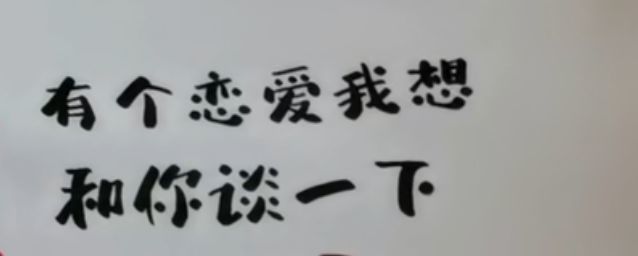 有个恋爱我想
和你谈一下